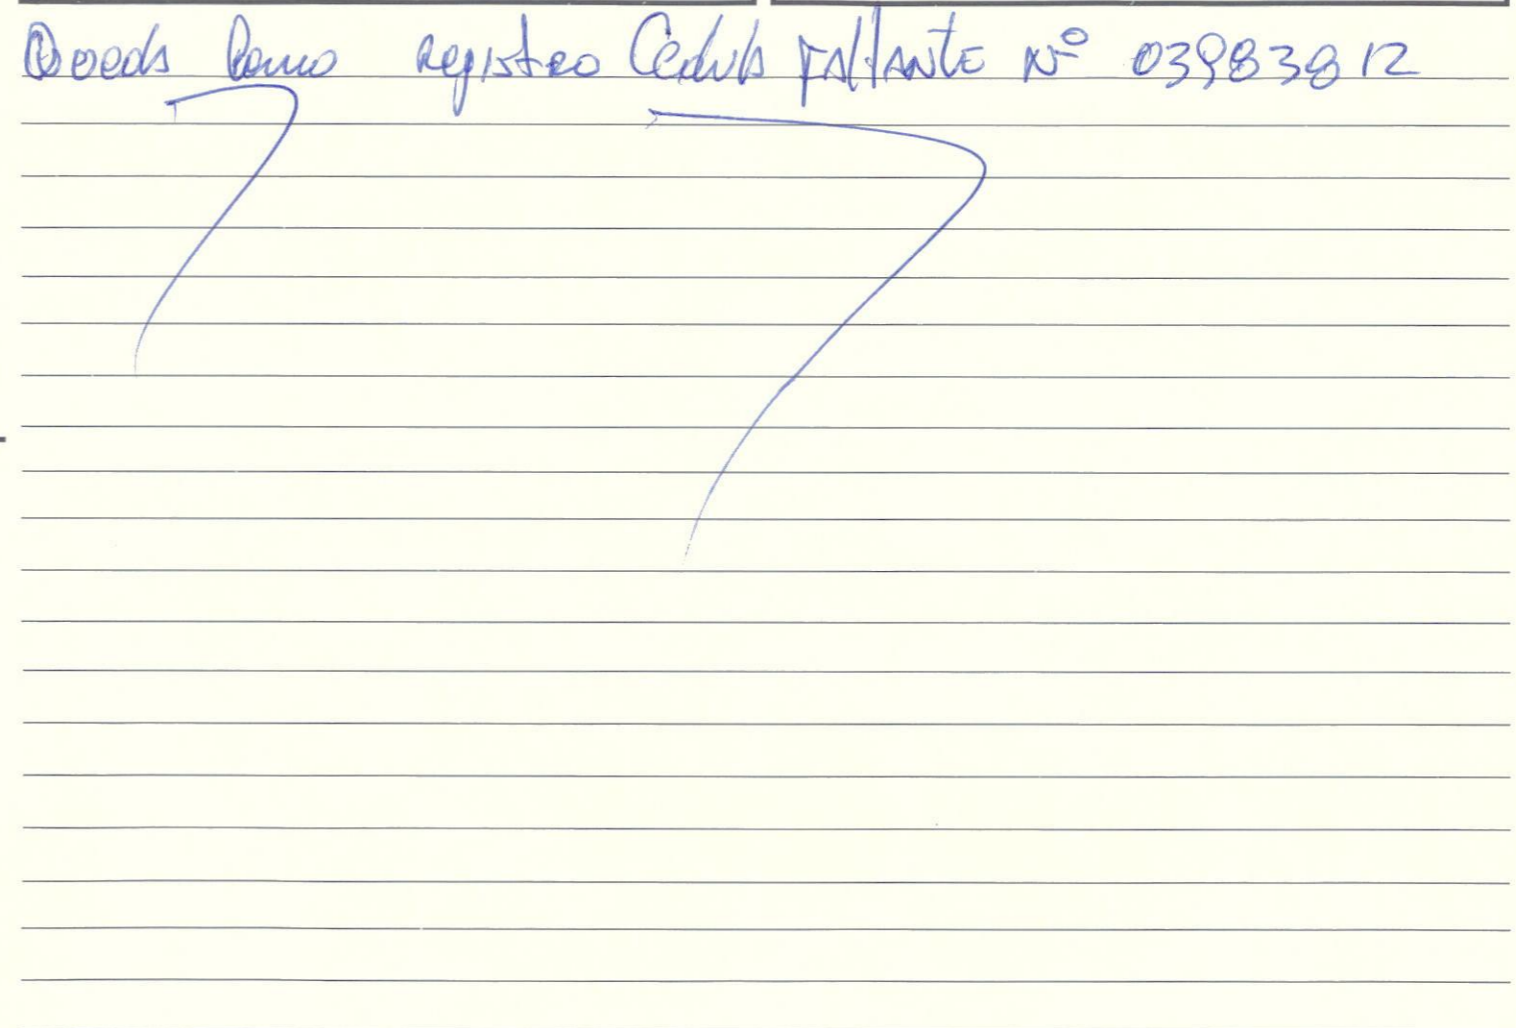 Queda Como registro Cédula FAltANtE Nº 03983812